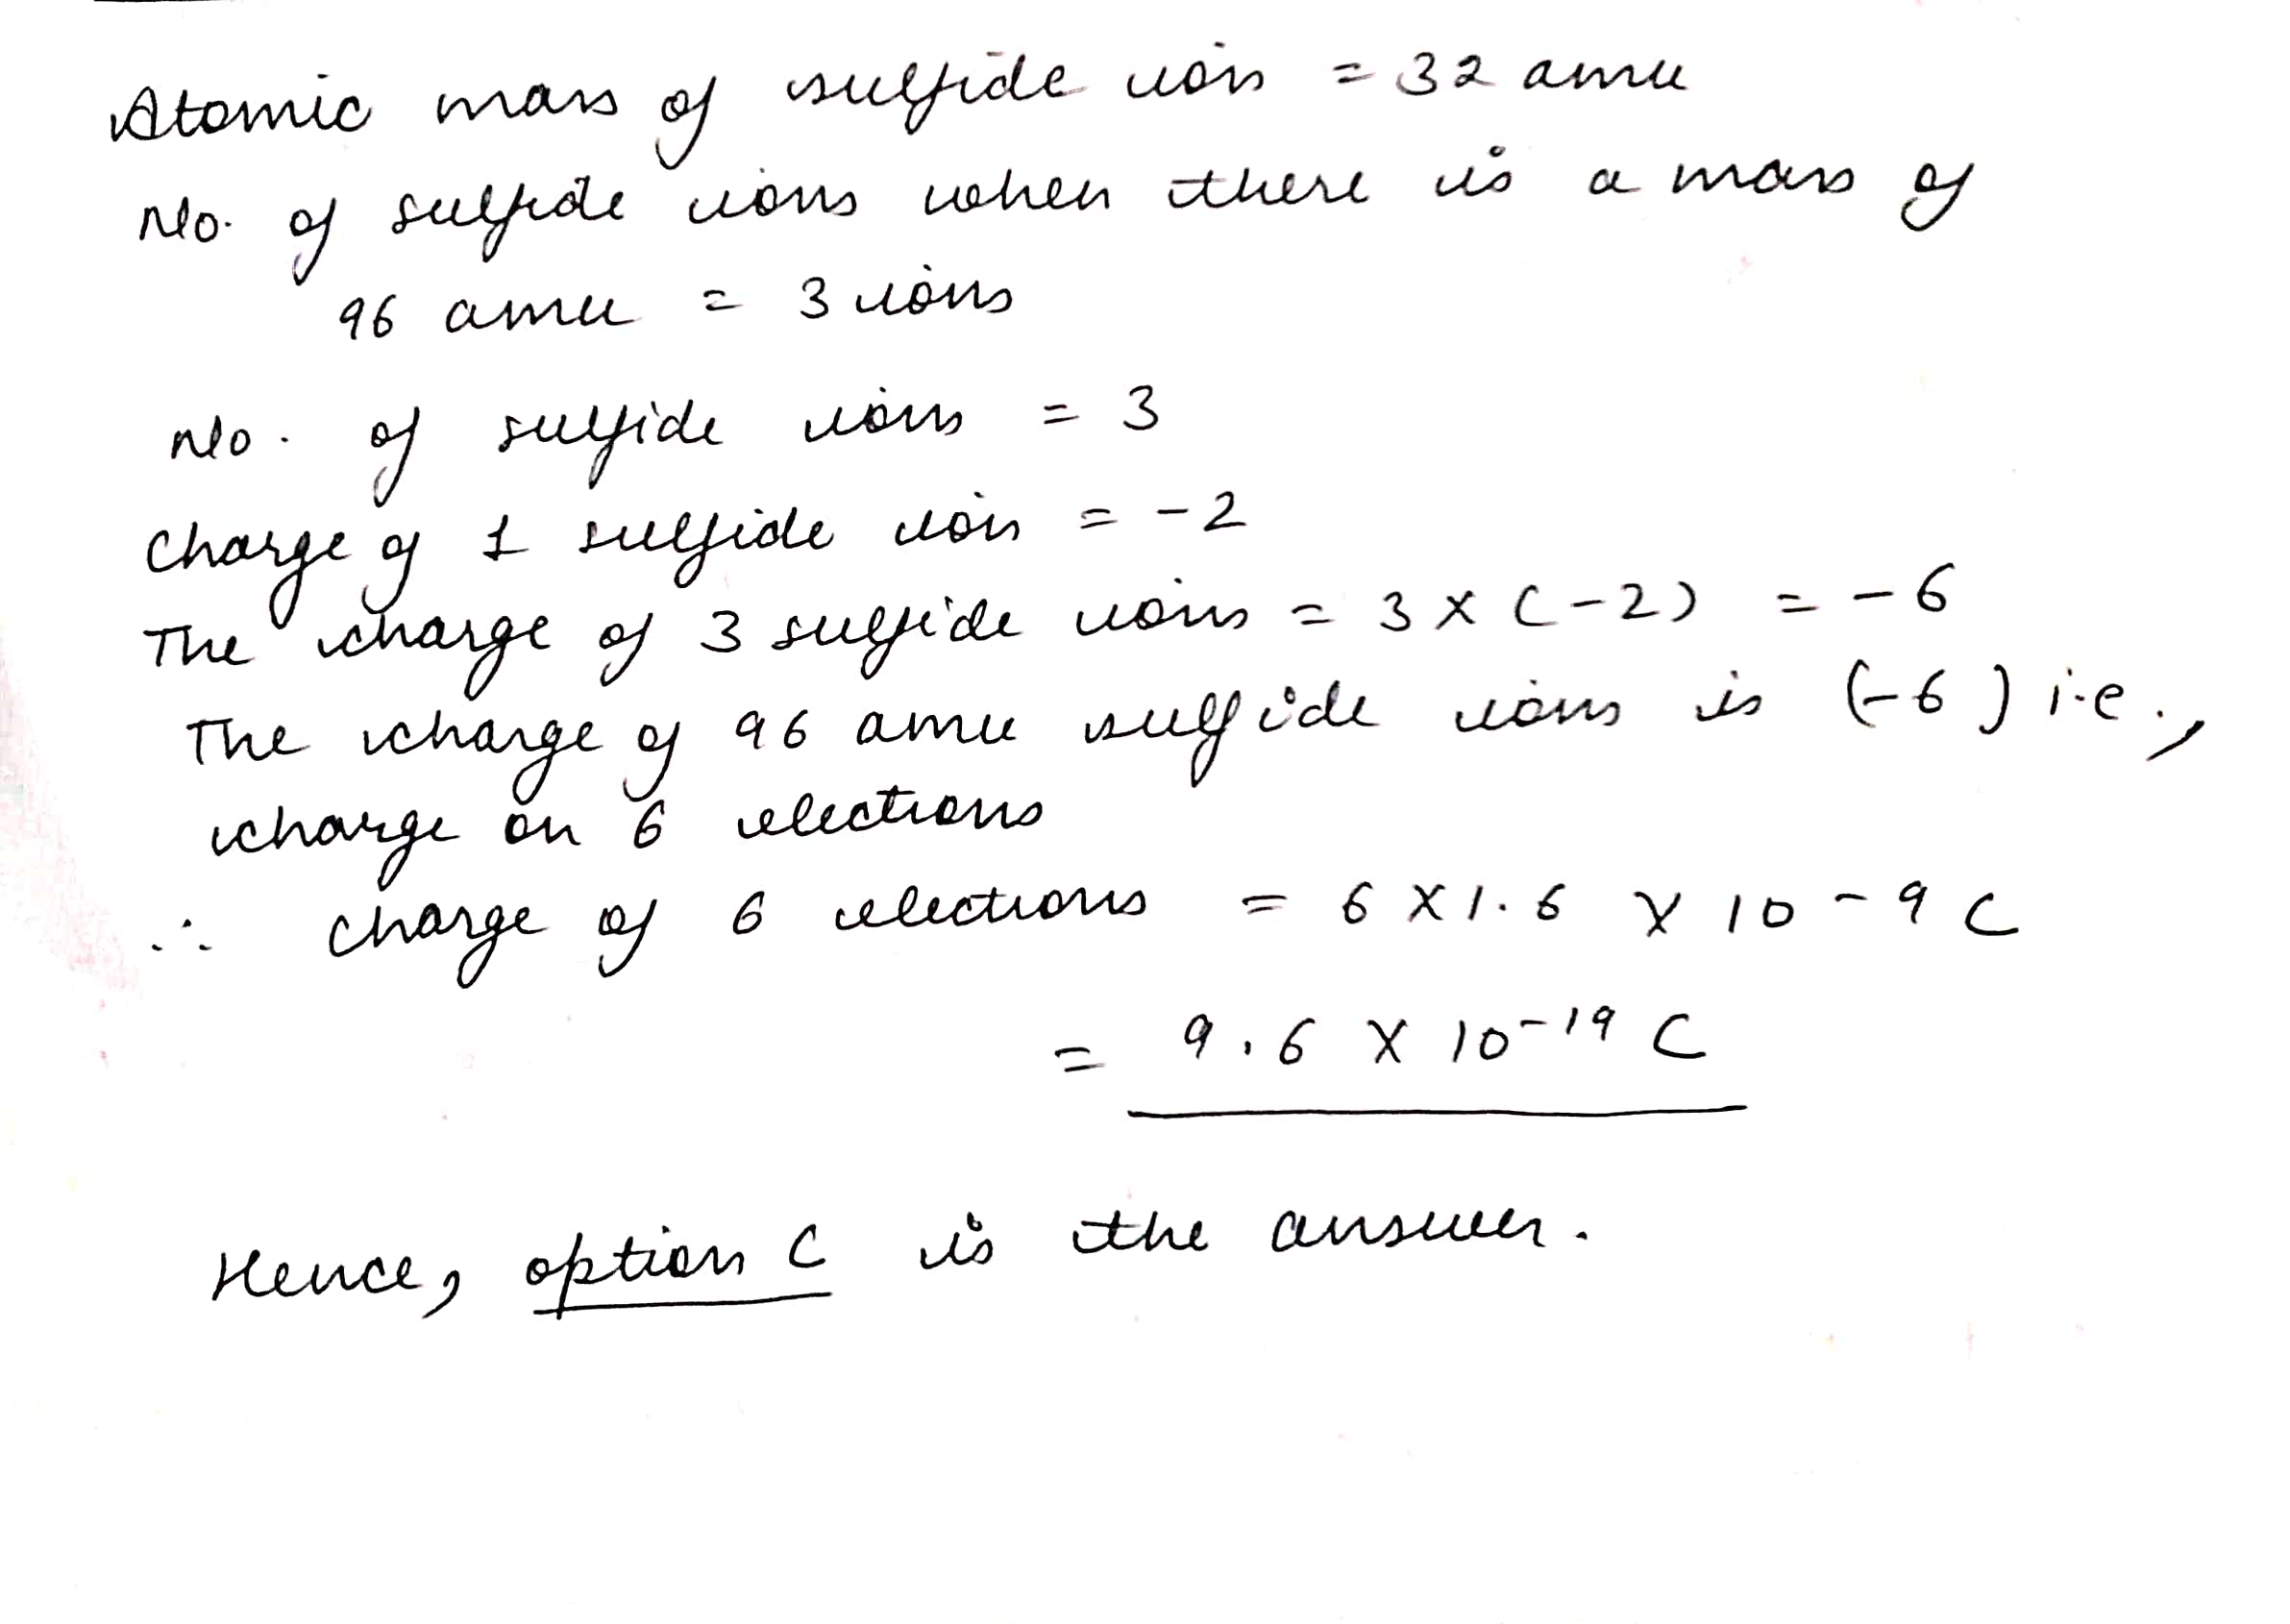 Atomic mass of sulfide ion = 32 amu
No. of sulfide ions when there is a mass of
96 amu = 3 ions
No. of sulfide ions = 3
Charge of 1 sulfide ion = -2
The charge of 3 sulfide ions = 3 X (-2) = -6
The charge of 96 amu sulfide ions is (-6) i.e.,
charge on 6 electrons
∴ Charge of 6 electrons = 6 X 1.6 X 10 - 9 C
= 9.6 X 10⁻¹⁹ C
Hence, option C is the answer.